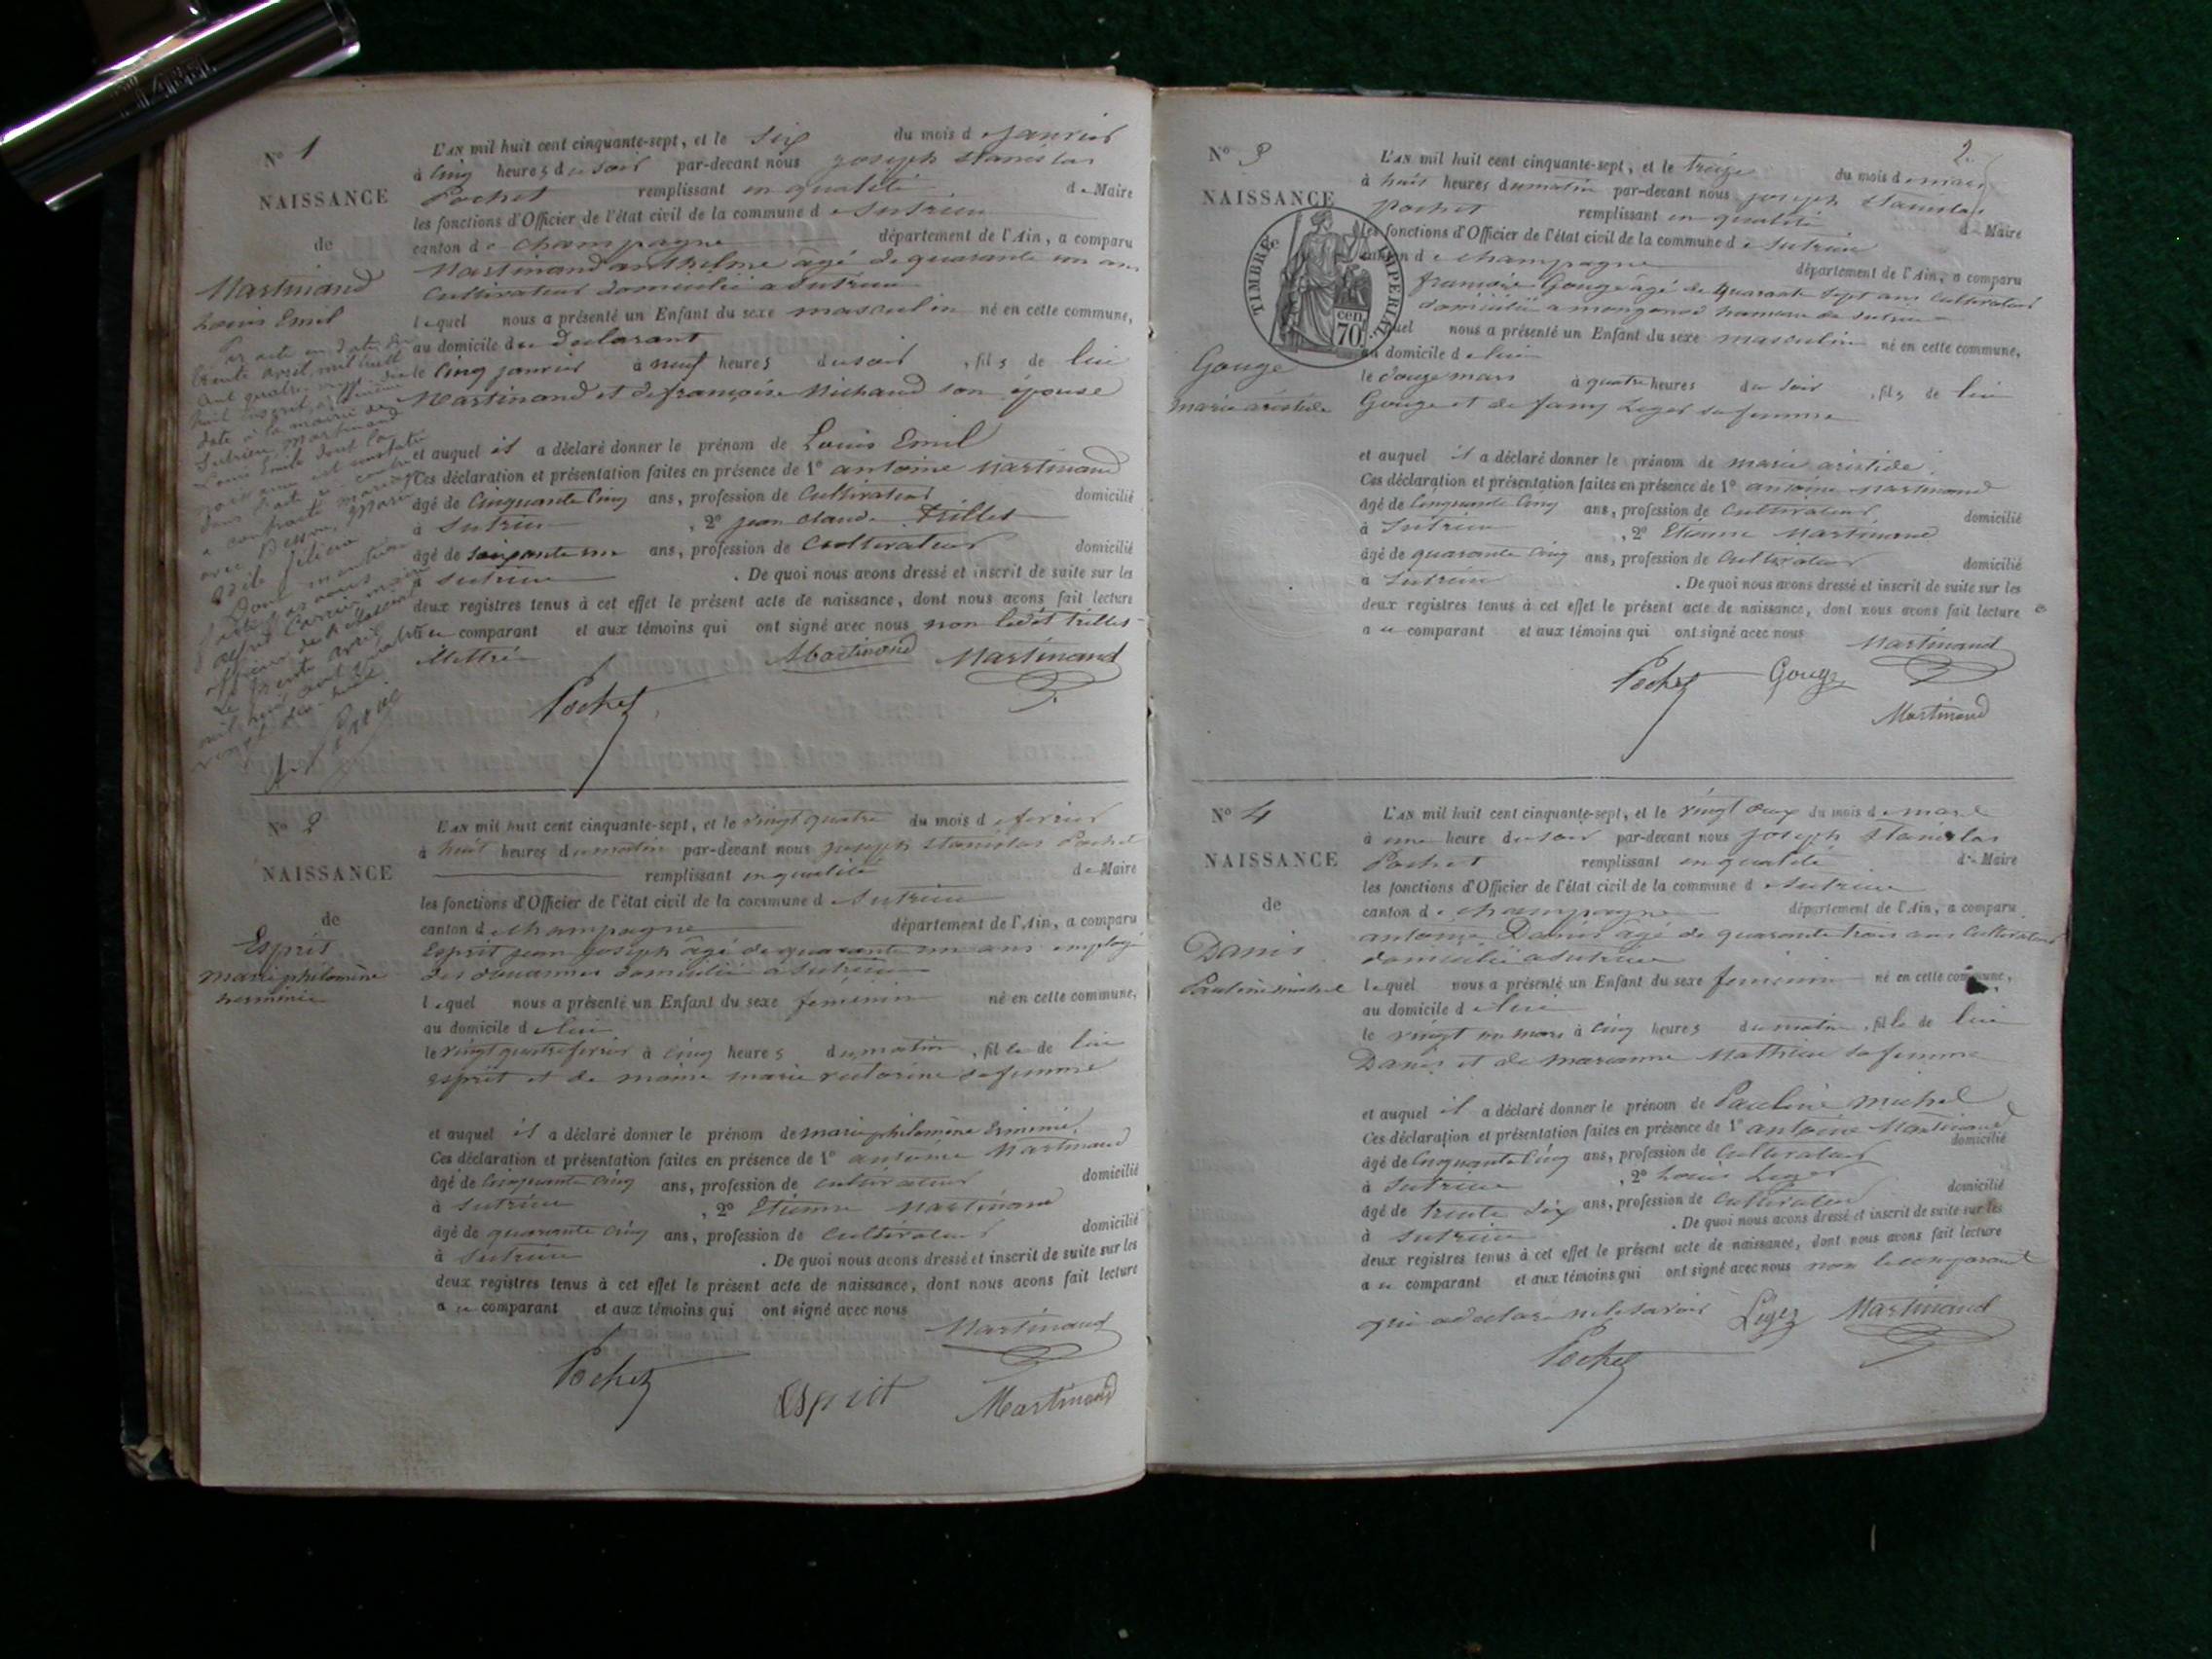 N° 1
NAISSANCE
de
Martinand
Louis Emil
L'AN mil huit cent cinquante-sept, et le six du mois de janvier
à cinq heures du soir par-devant nous joseph stanislas
Pochet remplissant en qualité de Maire
les fonctions d'Officier de l'état civil de la commune de Sutrieu
canton de champagne département de l'Ain, a comparu
Martinand anthelme agé de quarante un ans
Cultivateur domicilié a Sutrieu
lequel nous a présenté un Enfant du sexe masculin né en cette commune,
au domicile du declarant
le cinq janvier à neuf heures du soir, fils de lui
Martinand et de françoise Michaud son épouse
et auquel il a déclaré donner le prénom de Louis Emil
Ces déclaration et présentation faites en présence de 1° antoine Martinand
âgé de Cinquante Cinq ans, profession de Cultivateur domicilié
à Sutrieu, 2° jean claude Trillet
âgé de soixante un ans, profession de Cultivateur domicilié
à Sutrieu. De quoi nous avons dressé et inscrit de suite sur les
deux registres tenus à cet effet le présent acte de naissance, dont nous avons fait lecture
au comparant et aux témoins qui ont signé avec nous non ledit trillet
illettré
Martinand Martinand
Pochet
Par acte en date du
trente avril mil huit
cent quatre vingt dix
huit inscrit
date à la mairie de
Sutrieu, Martinand
Louis Emile dont la
naissance est constatée
dans l'acte ci-contre
a contracté mariage
avec Marie
Félicie
Dont mention
N° 2
NAISSANCE
de
Esprit
marie philomène
herminie
L'AN mil huit cent cinquante-sept, et le vingt quatre du mois de fevrier
à huit heures du matin par-devant nous joseph stanislas Pochet
remplissant en qualité de Maire
les fonctions d'Officier de l'état civil de la commune de Sutrieu
canton de champagne département de l'Ain, a comparu
Esprit jean joseph âgé de quarante un ans employé
des douannes domicilié a Sutrieu
lequel nous a présenté un Enfant du sexe féminin né en cette commune,
au domicile de lui
le vingt quatre fevrier à cinq heures du matin, fille de lui
esprit et de moine marie victorine sa femme
et auquel il a déclaré donner le prénom de marie philomène Erminie.
Ces déclaration et présentation faites en présence de 1° antoine Martinand
âgé de cinquante cinq ans, profession de cultivateur domicilié
à Sutrieu, 2° Etienne Martinand
âgé de quarante cinq ans, profession de Cultivateur domicilié
à Sutrieu. De quoi nous avons dressé et inscrit de suite sur les
deux registres tenus à cet effet le présent acte de naissance, dont nous avons fait lecture
au comparant et aux témoins qui ont signé avec nous
Martinand
Pochet Esprit Martinand
2
N° 3
NAISSANCE
TIMBRE IMPERIAL
cen
70
Gouge
marie aristide
L'AN mil huit cent cinquante-sept, et le treize du mois de mars
à huit heures du matin par-devant nous joseph stanislas
pochet remplissant en qualité de Maire
les fonctions d'Officier de l'état civil de la commune de Sutrieu
canton de champagne département de l'Ain, a comparu
françois Gouge âgé de Quarante sept ans Cultivateur
domicilié a mongonod hameau de Sutrieu
lequel nous a présenté un Enfant du sexe masculin né en cette commune,
au domicile de lui
le douze mars à quatre heures du soir, fils de lui
Gouge et de fany Leger sa femme
et auquel il a déclaré donner le prénom de marie aristide.
Ces déclaration et présentation faites en présence de 1° antoine Martinand
âgé de Cinquante Cinq ans, profession de Cultivateur domicilié
à Sutrieu, 2° Etienne Martinand
âgé de quarante cinq ans, profession de Cultivateur domicilié
à Sutrieu. De quoi nous avons dressé et inscrit de suite sur les
deux registres tenus à cet effet le présent acte de naissance, dont nous avons fait lecture
au comparant et aux témoins qui ont signé avec nous
Martinand
Pochet Gouge
Martinand
N° 4
NAISSANCE
de
Danis
Pauline michel
L'AN mil huit cent cinquante-sept, et le vingt deux du mois de mars
à une heure du soir par-devant nous joseph stanislas
Pochet remplissant en qualité de Maire
les fonctions d'Officier de l'état civil de la commune de Sutrieu
canton de champagne département de l'Ain, a comparu
antoine Danis agé de quarante trois ans Cultivateur
domicilié a Sutrieu
lequel nous a présenté un Enfant du sexe feminin né en cette commune,
au domicile de lui
le vingt un mars à cinq heures du matin, fille de lui
Danis et de marianne Mathieu sa femme
et auquel il a déclaré donner le prénom de Pauline michel
Ces déclaration et présentation faites en présence de 1° antoine Martinand
âgé de Cinquante Cinq ans, profession de Cultivateur domicilié
à Sutrieu, 2° Louis Leger
âgé de trente six ans, profession de Cultivateur domicilié
à Sutrieu. De quoi nous avons dressé et inscrit de suite sur les
deux registres tenus à cet effet le présent acte de naissance, dont nous avons fait lecture
au comparant et aux témoins qui ont signé avec nous non le comparant
qui a declaré ne le savoir Leger Martinand
Pochet